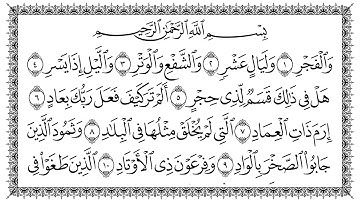 بِسْمِ اللَّهِ الرَّحْمَٰنِ الرَّحِيمِ
وَالْفَجْرِ ١ وَلَيَالٍ عَشْرٍ ٢ وَالشَّفْعِ وَالْوَتْرِ ٣ وَاللَّيْلِ إِذَا يَسْرِ ٤
هَلْ فِي ذَٰلِكَ قَسَمٌ لِذِي حِجْرٍ ٥ أَلَمْ تَرَ كَيْفَ فَعَلَ رَبُّكَ بِعَادٍ ٦
إِرَمَ ذَاتِ الْعِمَادِ ٧ الَّتِي لَمْ يُخْلَقْ مِثْلُهَا فِي الْبِلَادِ ٨ وَثَمُودَ الَّذِينَ
جَابُوا الصَّخْرَ بِالْوَادِ ٩ وَفِرْعَوْنَ ذِي الْأَوْتَادِ ١٠ الَّذِينَ طَغَوْا فِي